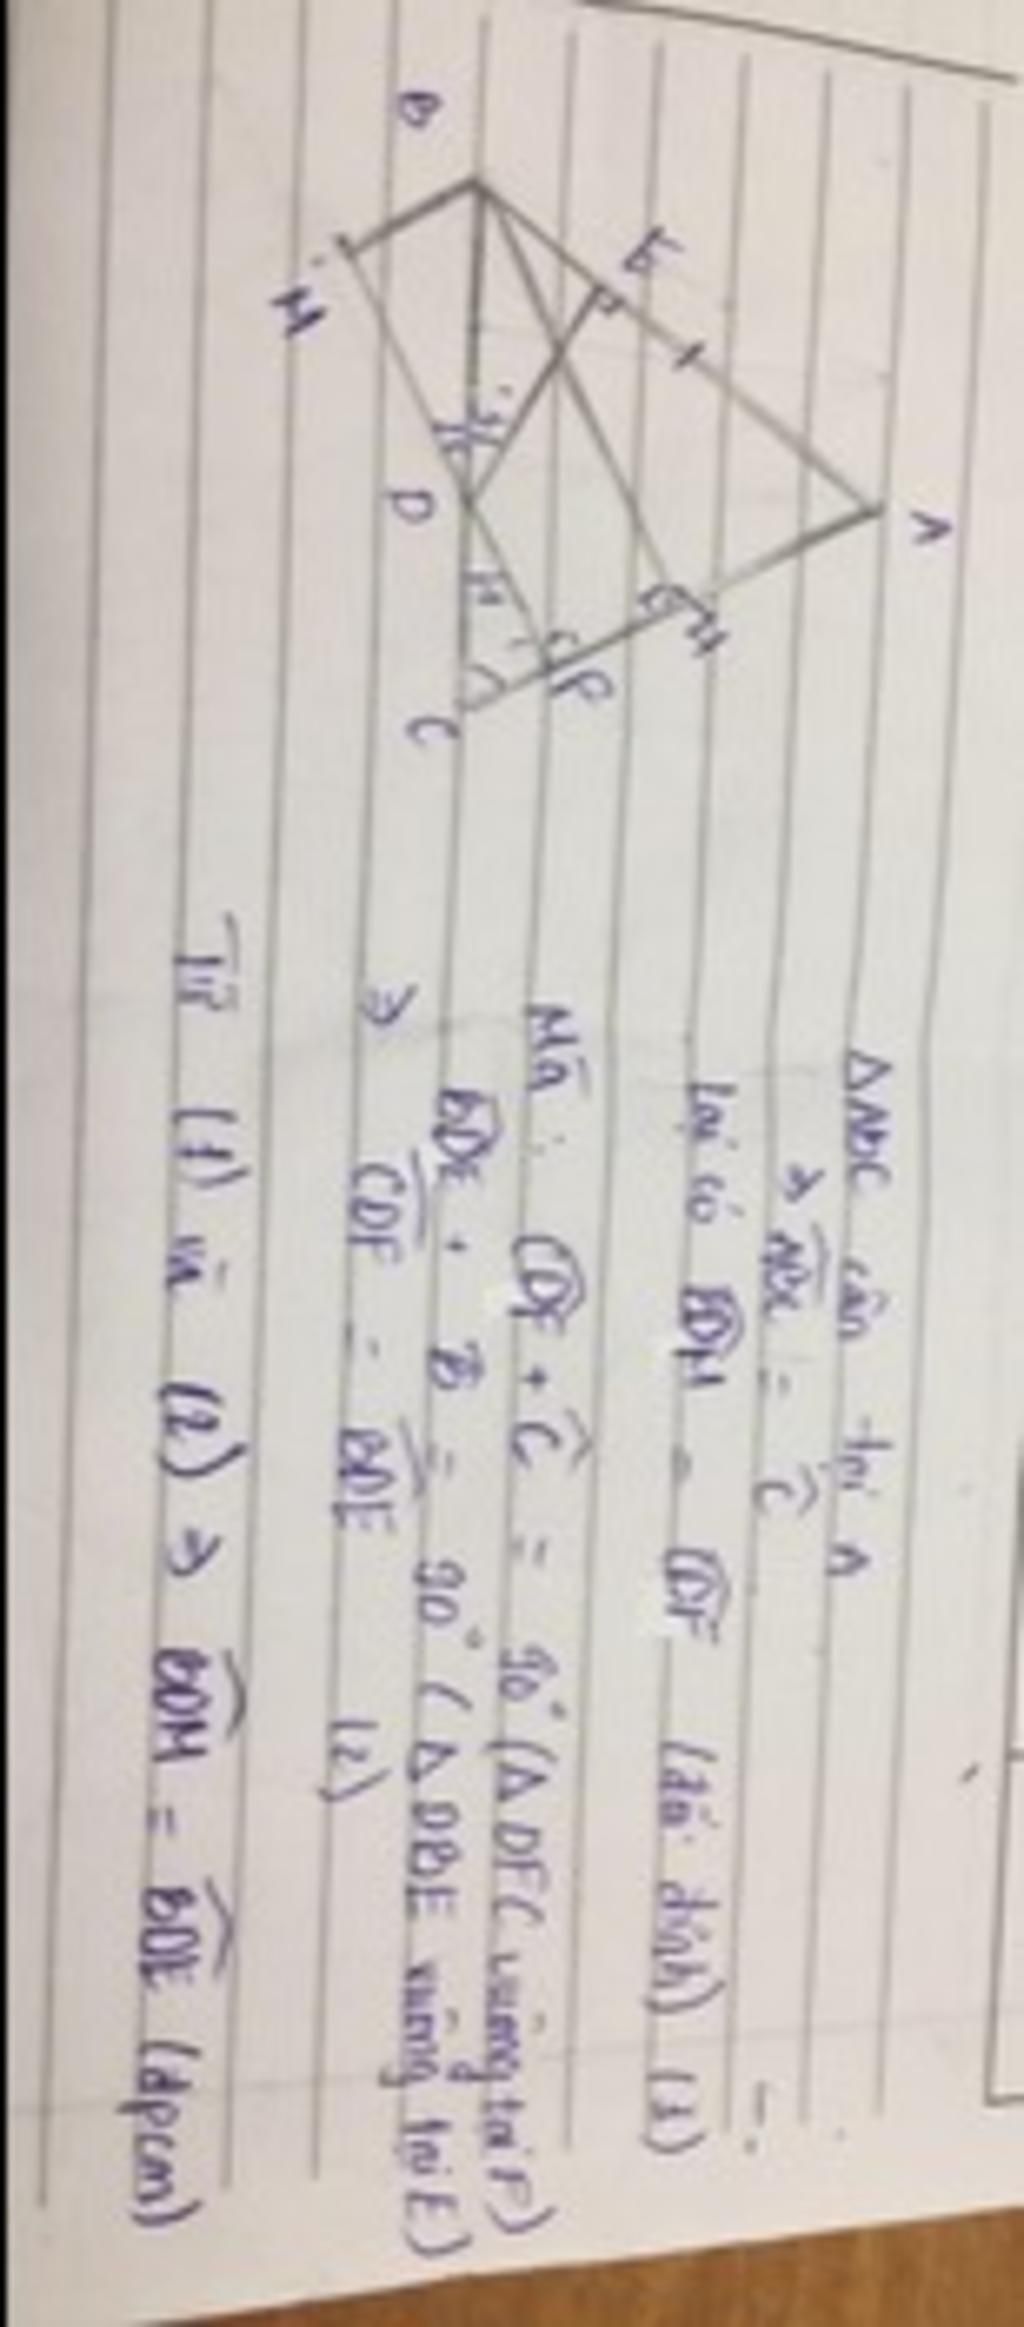 A
E
H
F
B
D
C
M
ΔABC cân tại A
⇒ ABC = Ĉ
lại có BDM = CDF (đối đỉnh) (1)
Mà : CDF + Ĉ = 90° (Δ DFC vuông tại F)
BDE + B = 90° (Δ DBE vuông tại E)
⇒ CDF = BDE (2)
Từ (1) và (2) ⇒ BDM = BDE (đpcm)